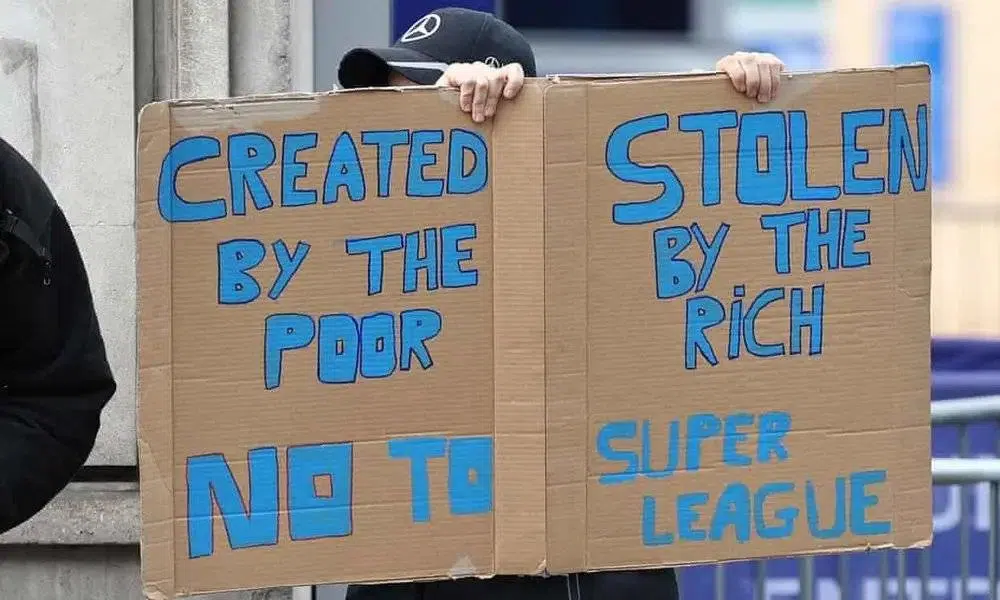 CREATED
BY THE
POOR
NO TO
STOLEN
BY THE
RiCH
SUPER
LEAGUE